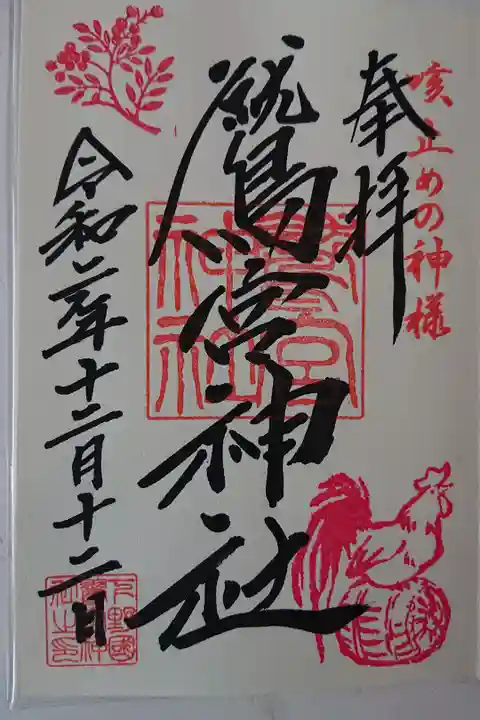 咳止めの神様
奉拝
鷲宮神社
鷲宮
神社
令和二年十二月十二日
下野國
鷲宮神
社之印